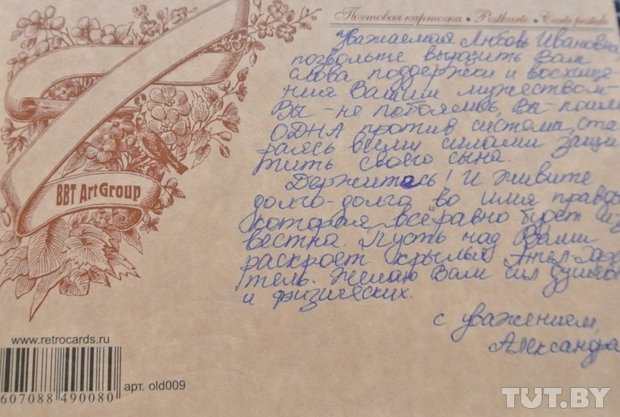 Почтовая карточка • Postkarte • Carte postale
Уважаемая Любовь Ивановна,
позвольте выразить Вам
слова поддержки и восхище-
ния Вашим мужеством.
Вы - не побоялись, Вы - пошли
ОДНА против системы, ста-
раясь всеми силами защи-
тить своего сына.
Держитесь! И живите
долго-долго во имя правды,
которая всё равно будет из-
вестна. Пусть над Вами
раскроет крылья Ангел-Хра
тель. Желаю Вам сил душев
и физических.
С уважением,
Александра
BBT ArtGroup
www.retrocards.ru
607088 490080
арт. old009
TUT.BY